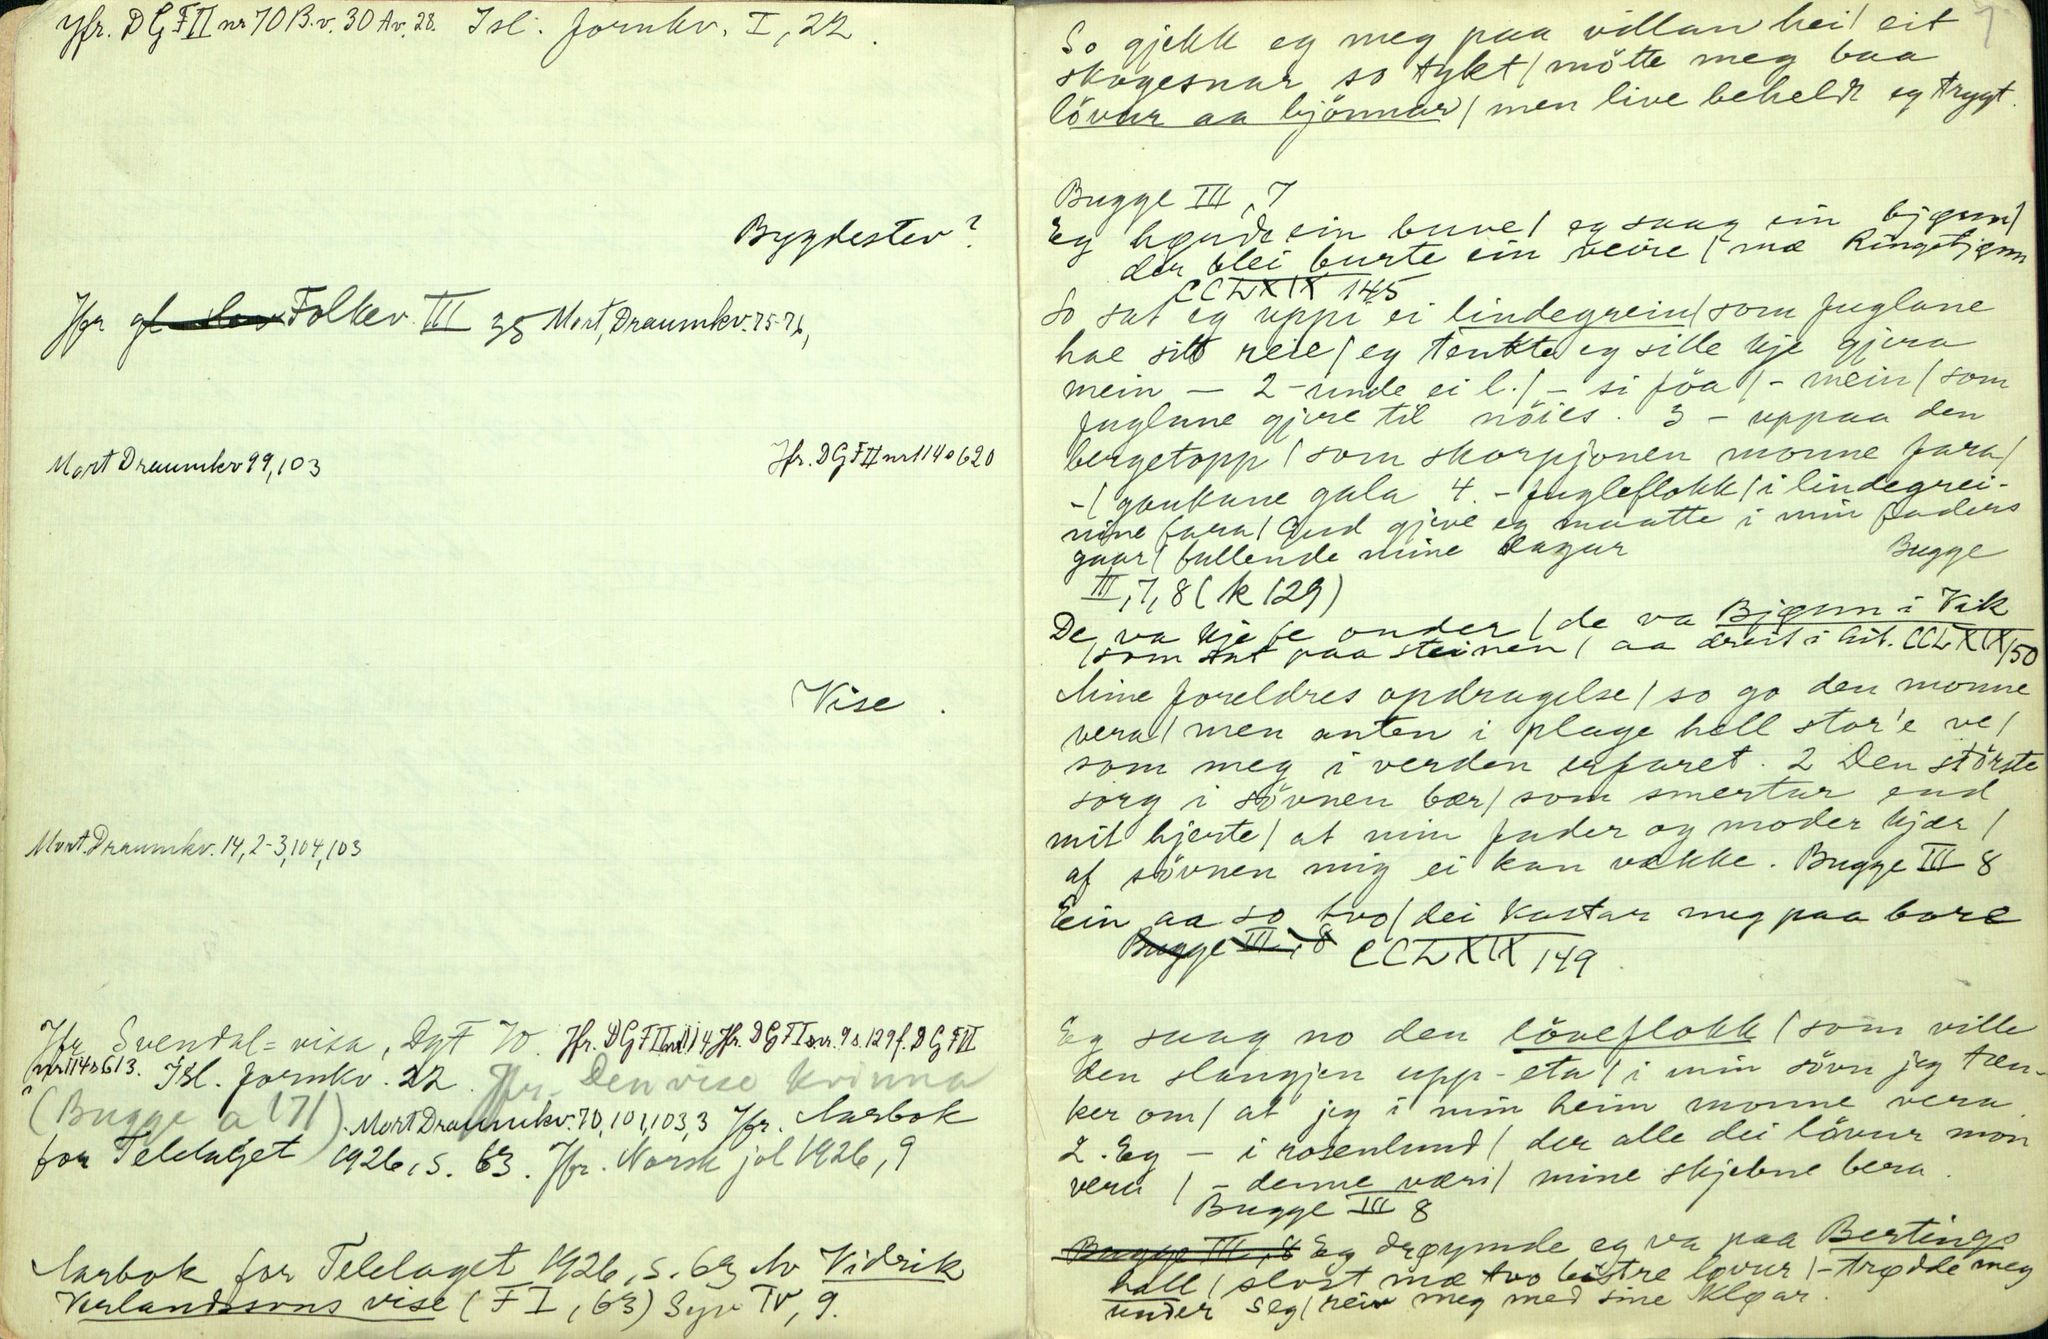 Jfr. DGF II nr 70 B. v. 30 Av. 28. Isl. fornkv. I, 22.
Bygdestev?
Jfr Folkev. III 38 Mort, Draumkv. 75-76,
Mort Draumkv 99, 103
Jfr. DGF II nr 114 s 620
Vise.
Mort. Draumkv. 14, 2-3, 104, 103
Jfr Svendal = visa, DgF 70. Jfr. DGF II nr 114 Jfr. DGF I s. 129 f. DGF II
nr 114 s 613. Isl. fornkv. 22. Jfr. Den vise kvinna
(Bugge a 171). Mort Draumkv. 70, 101, 103, 3 Jfr. Aarbok
for Telelaget 1926, s. 63. Jfr. Norsk jol 1926, 9
Aarbok for Telelaget 1926, s. 63 Av Vidrik
Verlandssons vise (F I, 63) Syv IV, 9.
7
So gjekk eg meg paa villan hei/ eit
skogesnar so tykt/ mötte meg baa
lövur aa bjönnar/ men live beheldt eg trygt.
Bugge III, 7
Eg høurde ein buve/ eg saag ein bjønn/
der blei burte ein veire/ mæ Ringetjønn
CCLXIX 145
So sat eg uppi ei lindegrein/ som fuglane
hae sitt reie/ eg tenkte eg sille kje gjera
mein — 2 - unde ei l./ - si föa/ - mein/ som
fuglane gjere til nöies. 3 - uppaa den
bergetopp/ som skorpjonen monne fara/
-/ gaukane gala 4. - fugleflokk/ i lindegrei-
nine fara/ Gud gjeve eg maatte i min faders
gaar/ fullende mine dagar Bugge
III, 7, 8 (k 129)
De va kje fe onder/ de va Bjønn i Vik
/som sat paa steinen/ aa dreit i hit. CCLXIX/50
Mine foreldres opdragelse/ so go den monne
vera/ men anten i plage hell stor'e ve/
som meg i verden erfaret. 2 Den störste
sorg i sövnen bær/ som smertar end
mit hjerte/ at min fader og moder kjær/
af sövnen mig ei kan vække. Bugge III 8
Ein aa so tvo/ dei kastar meg paa bore
Bugge III, 8 CCLXIX 149.
Eg saag no den löveflokk/ som ville
den slangjen upp-eta/ i min sövn jeg tæn-
ker om/ at jeg i min heim monne vera.
2. Eg — i rosenlund/ der alle dei lövur mon
vera/ - denne væri/ mine skjebne bera.
Bugge III 8
Bugge III, 8 Eg drøymde eg va paa Bertings
hall/ slost mæ tvo bistre løvur/ - trødde meg
under seg/ reiv meg med sine kløar.